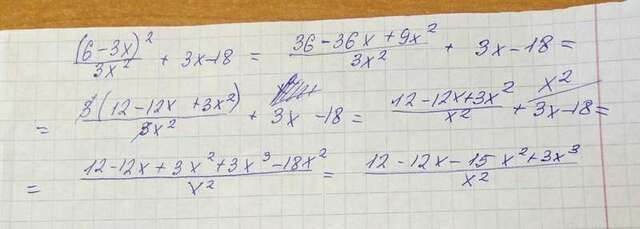 (6-3x)²/3x² + 3x-18 = 36-36x+9x²/3x² + 3x-18 =
= 3(12-12x+3x²)/3x² + 3x-18 = 12-12x+3x²/x² + x²/3x-18 =
= 12-12x+3x²+3x³-18x²/x² = 12-12x-15x²+3x³/x²